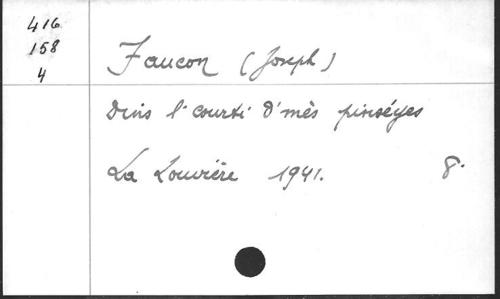 416
158
4
Faucon (Joseph)
Dins l' courti d' mès pinséyes
La Louvière 1941. 8°